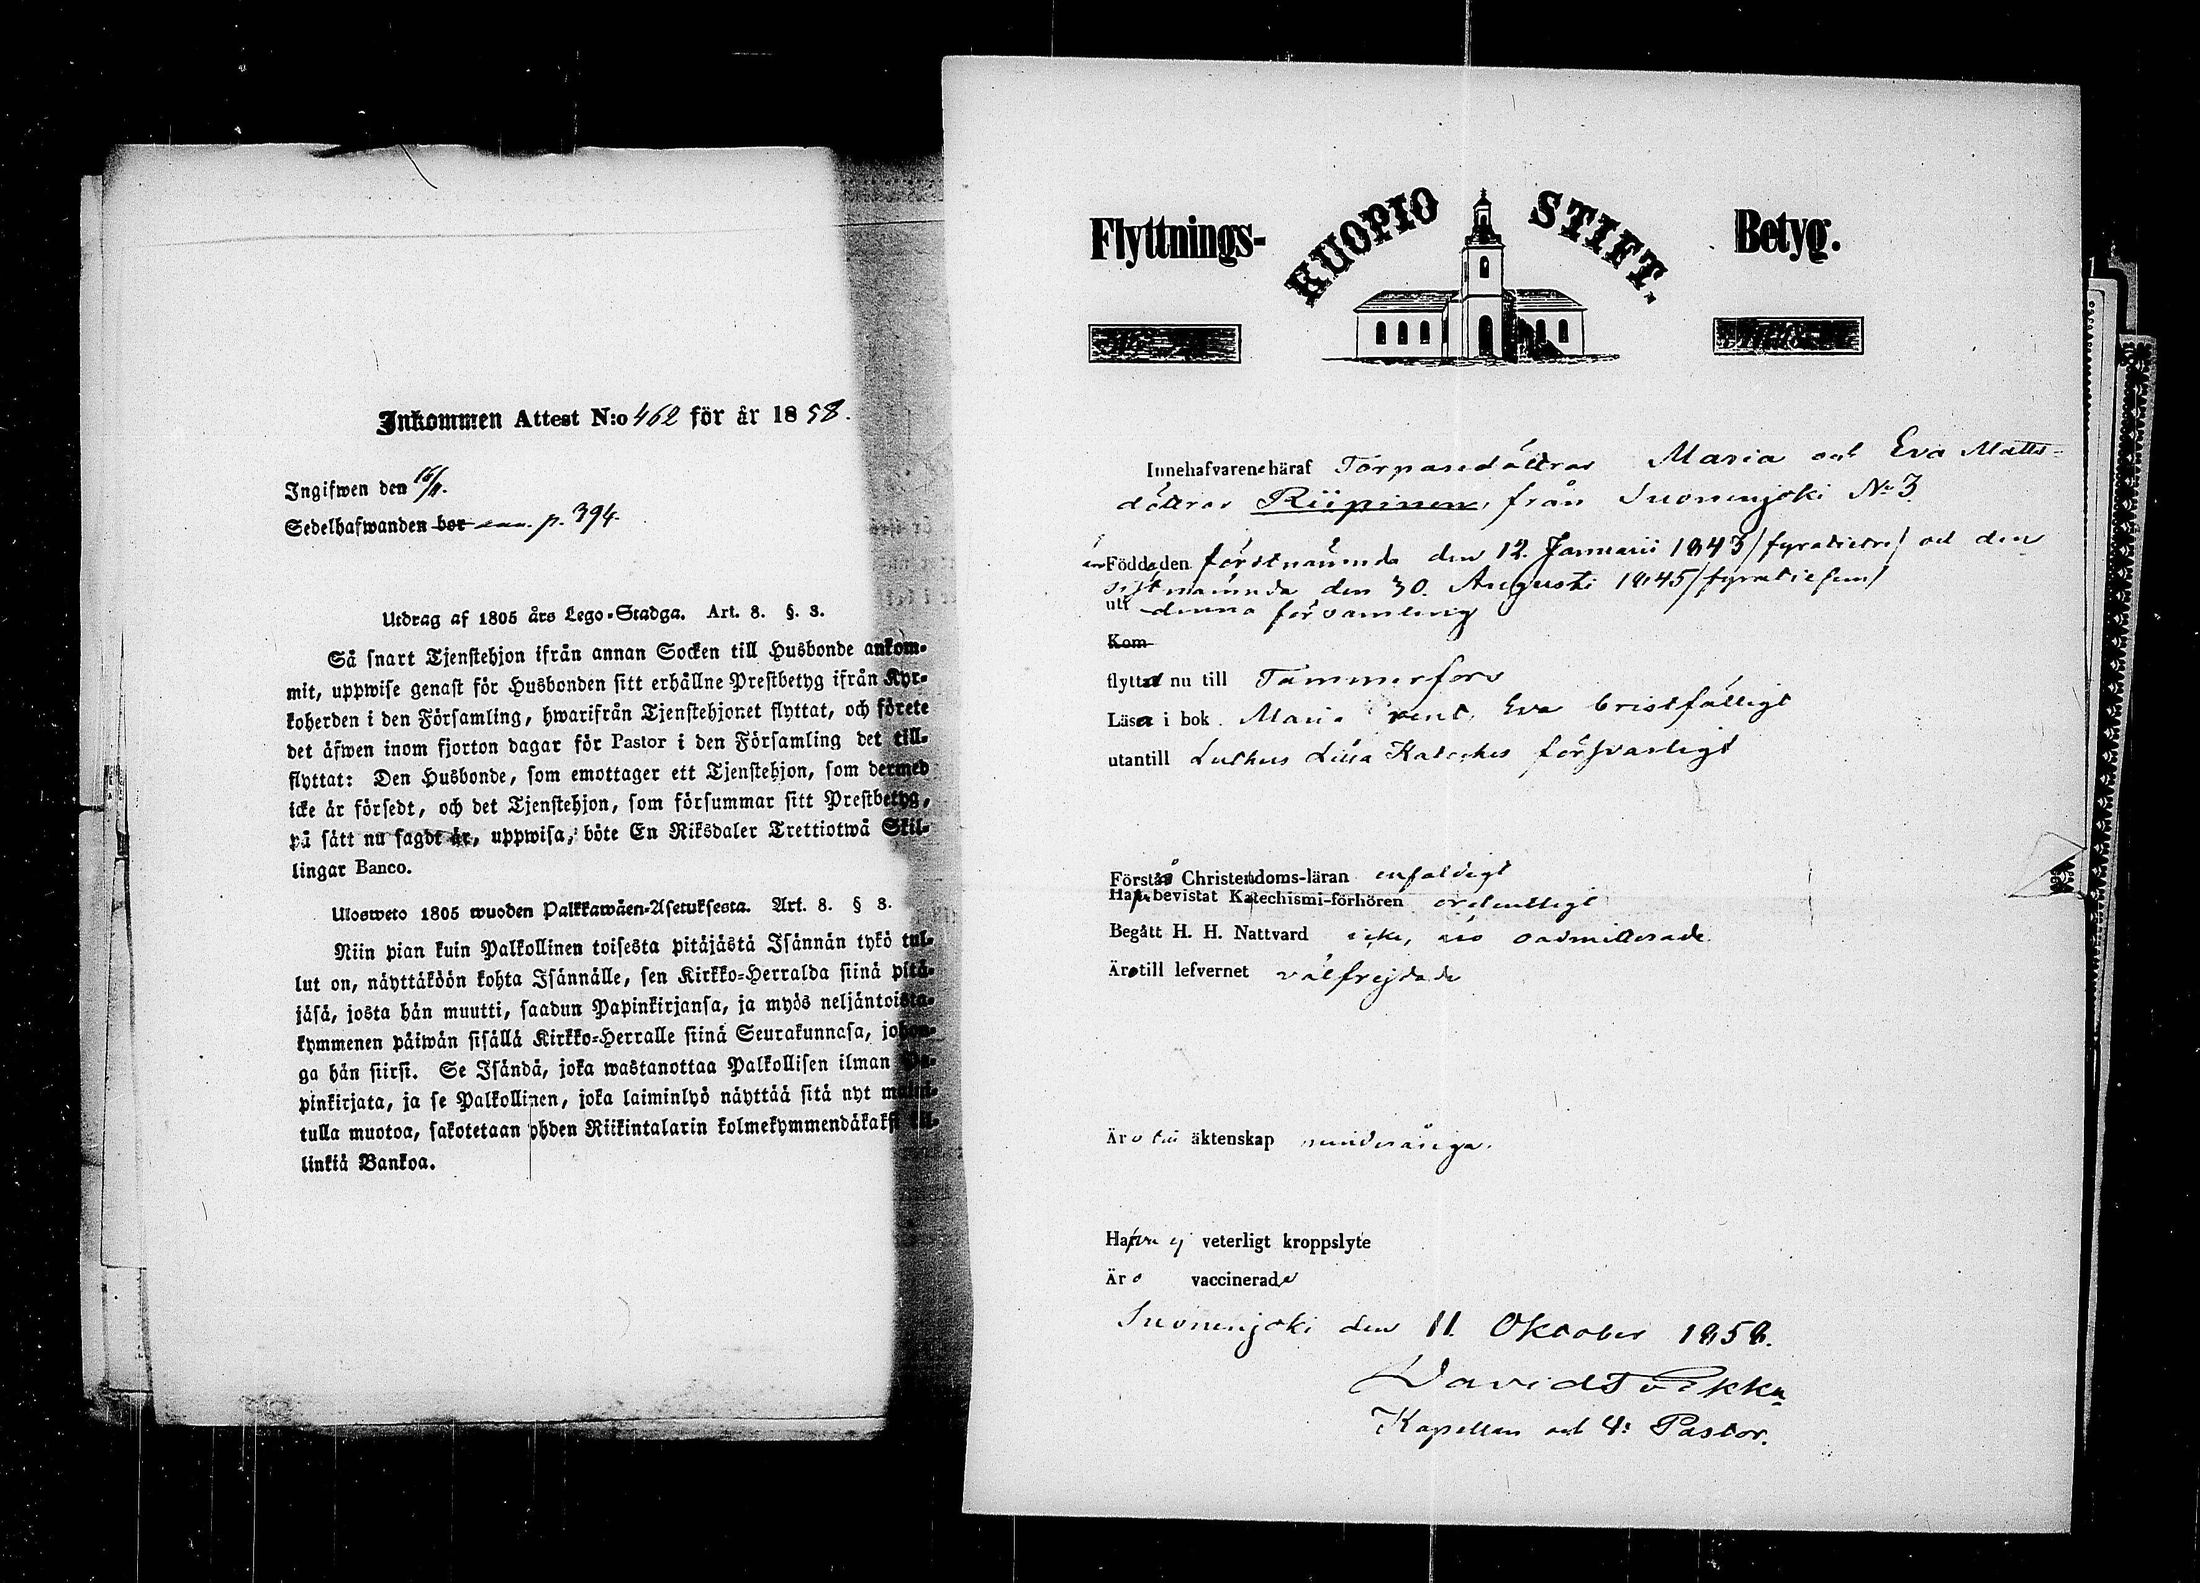 Inkommen Attest N:o 462 för år 1858.
Ingifwen den 16/11.
Sedelhafwanden bor p. 394.
Utdrag af 1805 års Lego-Stadga. Art. 8. §. 3.
Så snart Tjenstehjon ifrån annan Socken till Husbonde ankom-
mit, uppwise genast för Husbonden sitt erhållne Prestbetyg ifrån Kyr-
koherden i den Församling, hwarifrån Tjenstehjonet flyttat, och förete
det äfwen inom fjorton dagar för Pastor i den Församling det till-
flyttat: Den Husbonde, som emottager ett Tjenstehjon, som dermed
icke är försedt, och det Tjenstehjon, som försummar sitt Prestbetyg,
på sätt nu sagdt är, uppwisa, böte En Riksdaler Trettiotwå Skil-
lingar Banco.
Ulosweto 1805 wuoden Palkkawäen-Asetuksesta. Art. 8. § 3.
Niin pian kuin Palkollinen toisesta pitäjästä Isännän tykö tul-
lut on, näyttäköön kohta Isännälle, sen Kirkko-Herralda siinä pitä-
jäsä, josta hän muutti, saadun Papinkirjansa, ja myös neljäntoista-
kymmenen päiwän sisällä Kirkko-Herralle siinä Seurakunnasa, johon-
ga hän siirsi. Se Isändä, joka wastanottaa Palkollisen ilman Pa-
pinkirjata, ja se Palkollinen, joka laiminlyö näyttää sitä nyt maini-
tulla muotoa, sakotetaan yhden Riikintalarin kolmekymmendäkaksi kil-
linkiä Bankoa.
Flyttnings- KUOPIO STIFT. Betyg.
Innehafvarene häraf Torparedöttrar Maria och Eva Matts-
döttrar Riipinen, från Suonenjoki No 3
är Födde den förstnämnda den 12. Januarii 1843 /fyratietre/ och den
sistnämnda den 30. Augusti 1845 /fyratiefem/
uti denna församling
Kom
flytta nu till Tammerfors
Läsa i bok Maria rent, Eva bristfälligt
utantill Luthers Lilla Kateches försvarligt
Förstå Christendoms-läran enfaldigt
Hafva bevistat Katechismi-förhören ordentligt
Begått H. H. Nattvard icke, äro oadmitterade
Äro till lefvernet välfrejdade
Äro till äktenskap minderåriga.
Hafva ej veterligt kroppslyte
Äro vaccinerade
Suonenjoki den 11 Oktober 1858.
David
Kapellan och V: Pastor.